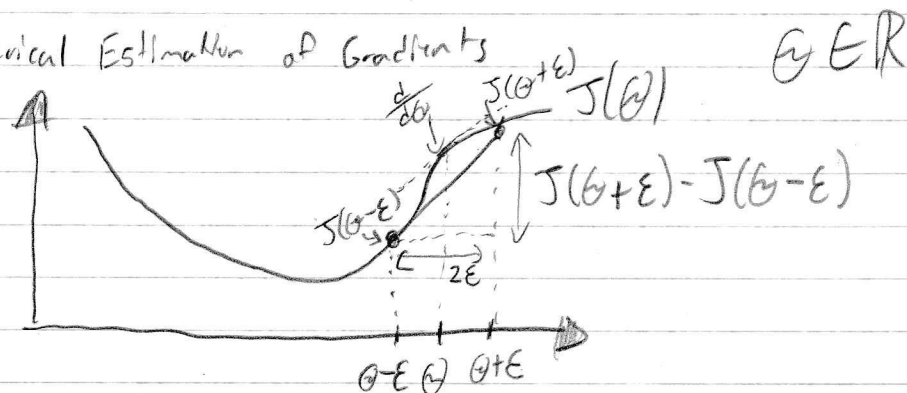 rical Estimation of Gradients
Θ ∈ ℝ
d/dΘ
J(Θ+ε)
J(Θ)
J(Θ-ε)
J(Θ+ε) - J(Θ-ε)
2ε
Θ-ε Θ Θ+ε